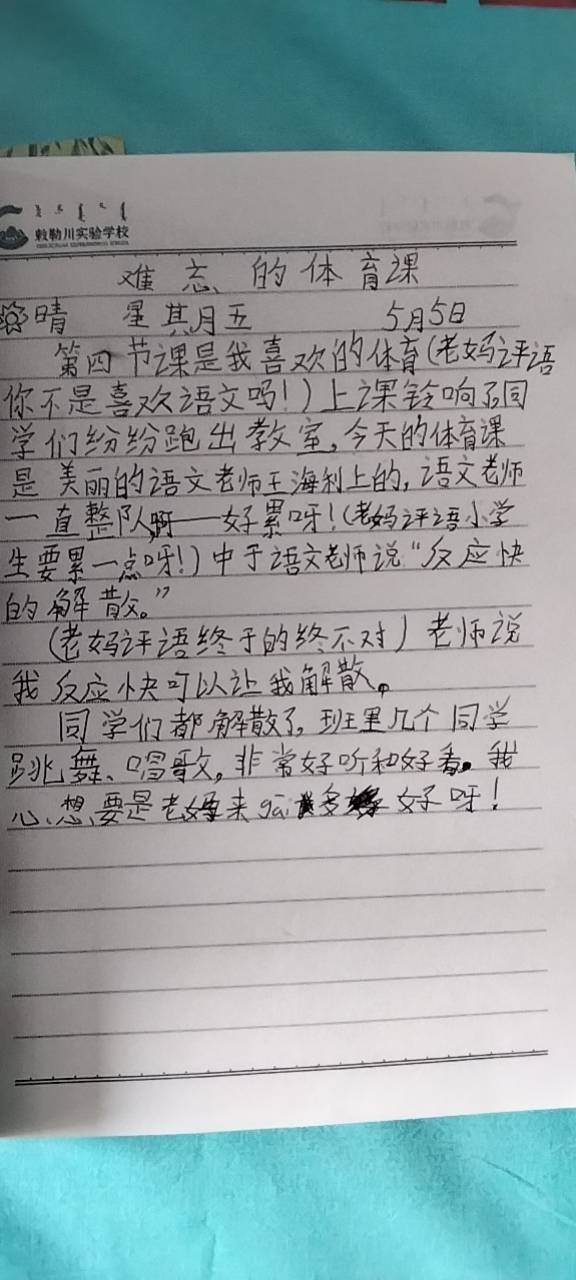 敕勒川实验学校
难忘的体育课
晴 星其月五 5月5日
第四节课是我喜欢的体育(老妈评语
你不是喜欢语文吗!)上课铃响了同
学们纷纷跑出教室,今天的体育课
是美丽的语文老师王海利上的,语文老师
一直整队啊——好累呀!(老妈评语小学
生要累一点呀!)中于语文老师说“反应快
的解散。”
(老妈评语终于的终不对)老师说
我反应快可以让我解散。
同学们都解散了,班里几个同学
跳舞、唱歌,非常好听和好看。我
心想要是老妈来gāi多好呀!